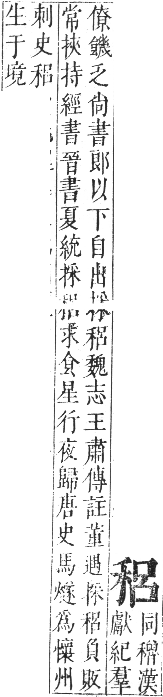 稆
同穭漢
獻紀羣
僚饑乏尚書郎以下自出採稆魏志王肅傳註董遇採稆負販
常挾持經書晉書夏統採稆求食星行夜歸唐史馬燧爲懷州
刺史稆
生于境